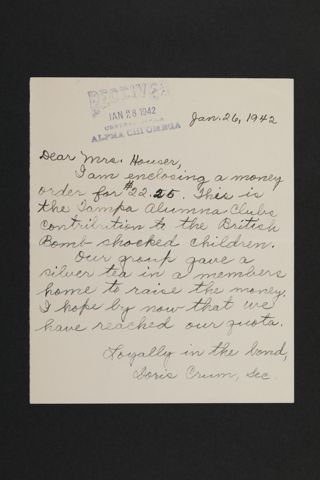 RECEIVED
JAN 28 1942
CENTRAL OFFICE
ALPHA CHI OMEGA
Jan. 26, 1942
Dear Mrs. Houser,
I am enclosing a money
order for $22.25. This is
the Tampa Alumna Clubs
contribution to the British
Bomb-shocked children.
Our group gave a
silver tea in a members
home to raise the money.
I hope by now that we
have reached our quota.
Loyally in the bond,
Doris Crum, Sec.